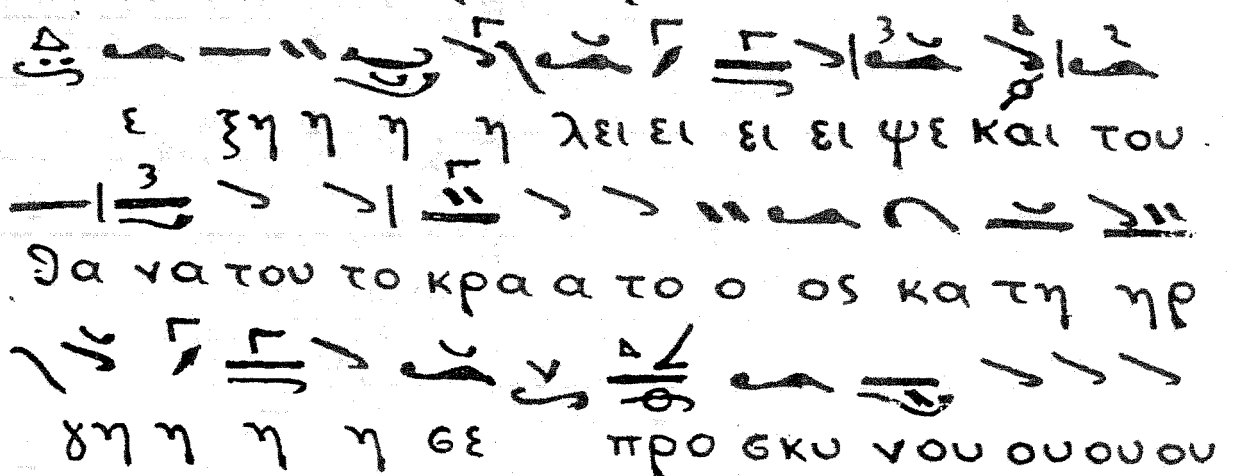 ε ξη η η η λει ει ει ει ψε και του
θα να του το κρα α το ο ος κα τη ηρ
γη η η η σε προ σκυ νου ου ου ου